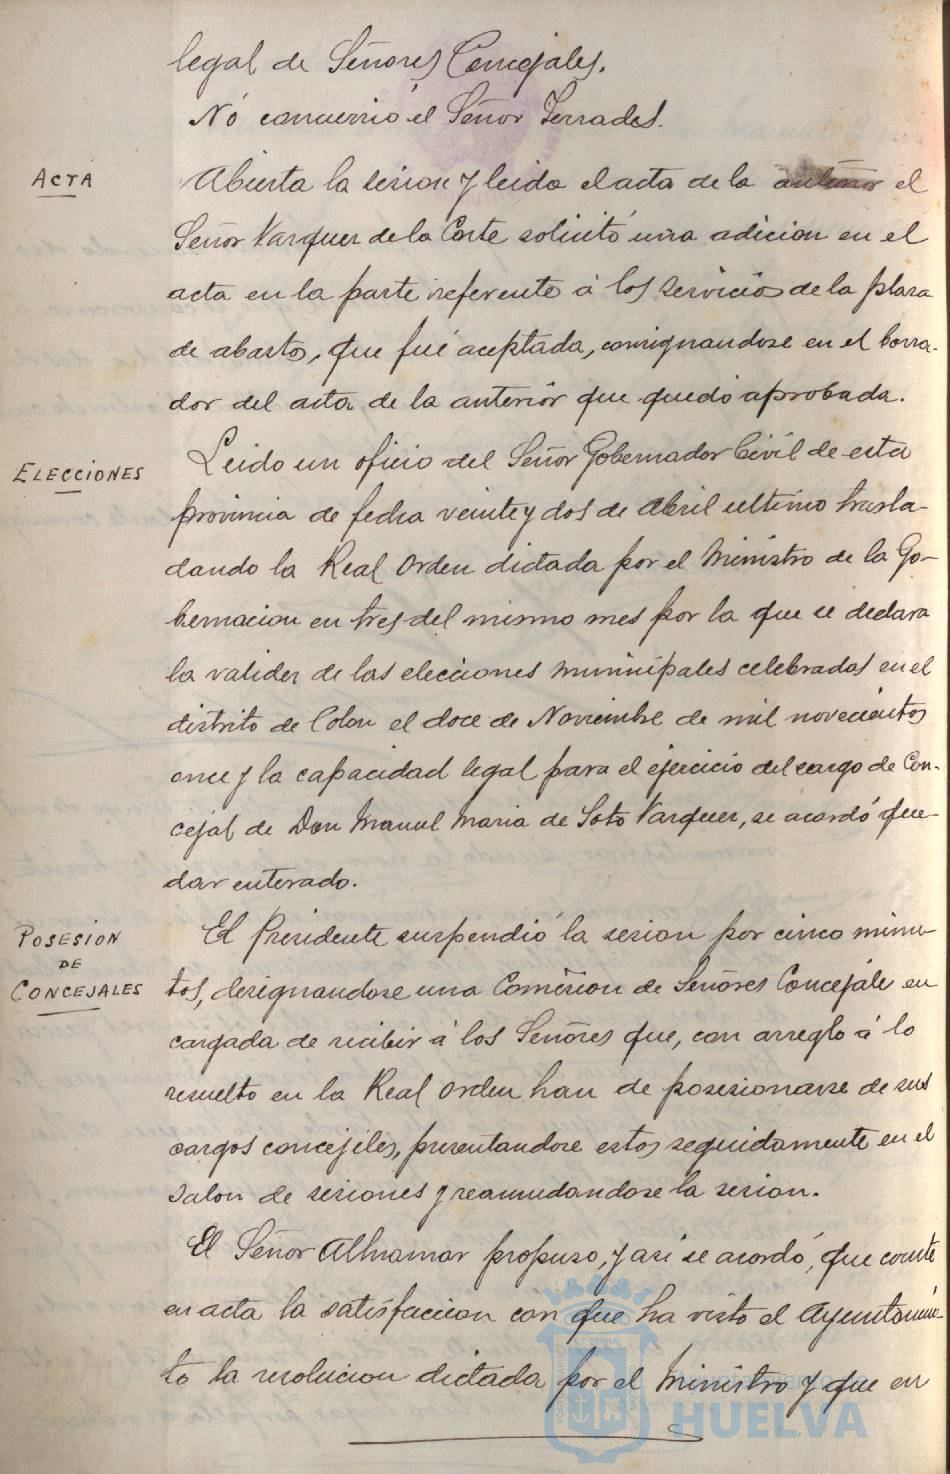 legal de Señores Concejales.
Nó concurrió el Señor Terrades.
ACTA
Abierta la sesion y leida el acta de la anterior el
Señor Vazquez de la Corte solicitó una adicion en el
acta en la parte referente á los servicios de la plaza
de abastos, que fué aceptada, consignandose en el borra-
dor del acta de la anterior que quedó aprobada.
ELECCIONES
Leido un oficio del Señor Gobernador Civil de esta
provincia de fecha veinte y dos de Abril ultimo trasla-
dando la Real Orden dictada por el Ministro de la Go-
bernacion en tres del mismo mes por la que se declara
la validez de las elecciones municipales celebradas en el
distrito de Colon el doce de Noviembre de mil novecientos
once y la capacidad legal para el ejercicio del cargo de Con-
cejal de Don Manuel Maria de Soto Vazquez, se acordó que-
dar enterado.
POSESION
DE
CONCEJALES
El Presidente suspendió la sesion por cinco minu-
tos, designandose una Comision de Señores Concejales en
cargada de recibir á los Señores que, con arreglo á lo
resuelto en la Real Orden han de posesionarse de sus
cargos concejiles, presentandose estos seguidamente en el
Salon de sesiones y reanudandose la sesion.
El Señor Alhnamar propuso, y asi se acordó, que conste
en acta la satisfaccion con que ha visto el Ayuntamien-
to la resolucion dictada por el Ministro y que en
Ayuntamiento de
HUELVA